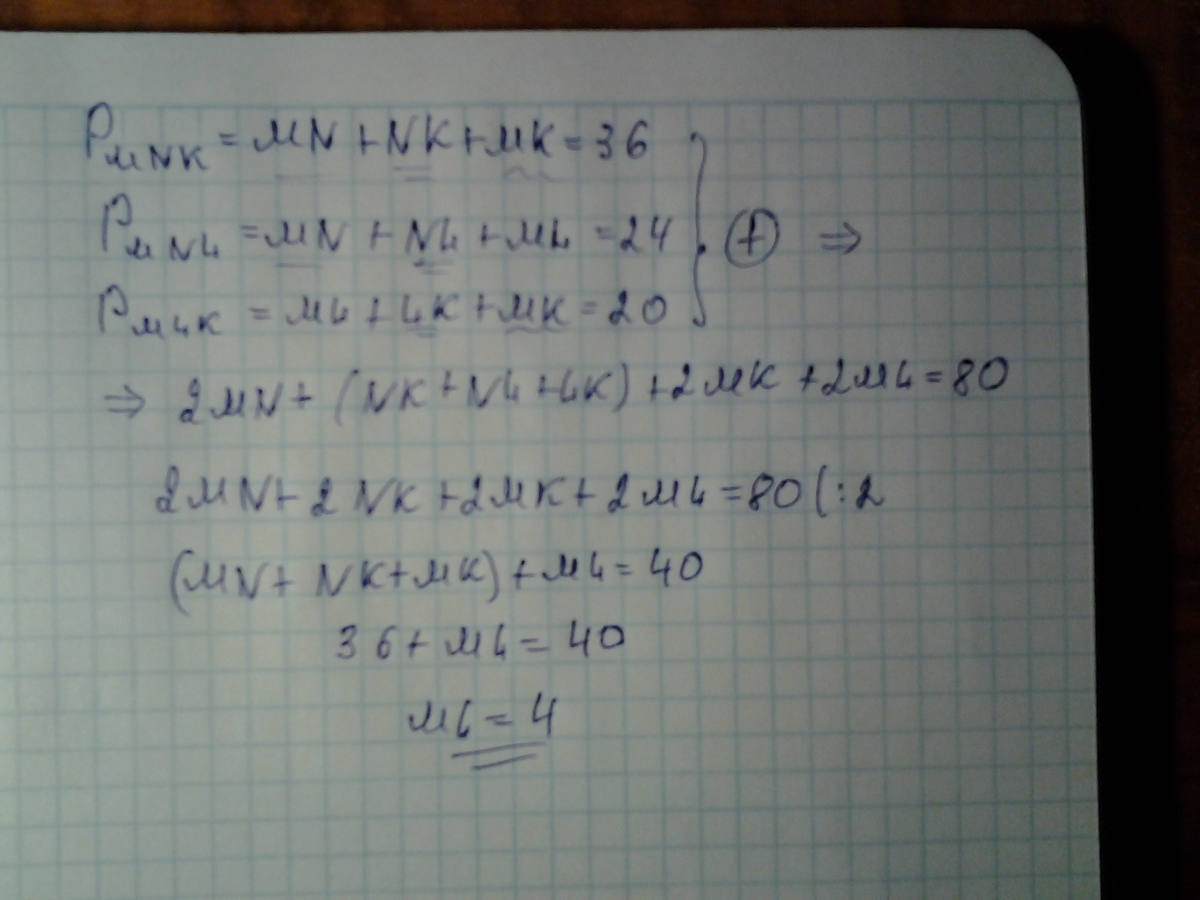 P MNK = MN + NK + MK = 36
P MNL = MN + NL + ML = 24 } ⊕ ⇒
P MLK = ML + LK + MK = 20
⇒ 2MN + (NK + NL + LK) + 2MK + 2ML = 80
2MN + 2NK + 2MK + 2ML = 80 (:2
(MN + NK + MK) + ML = 40
36 + ML = 40
ML = 4